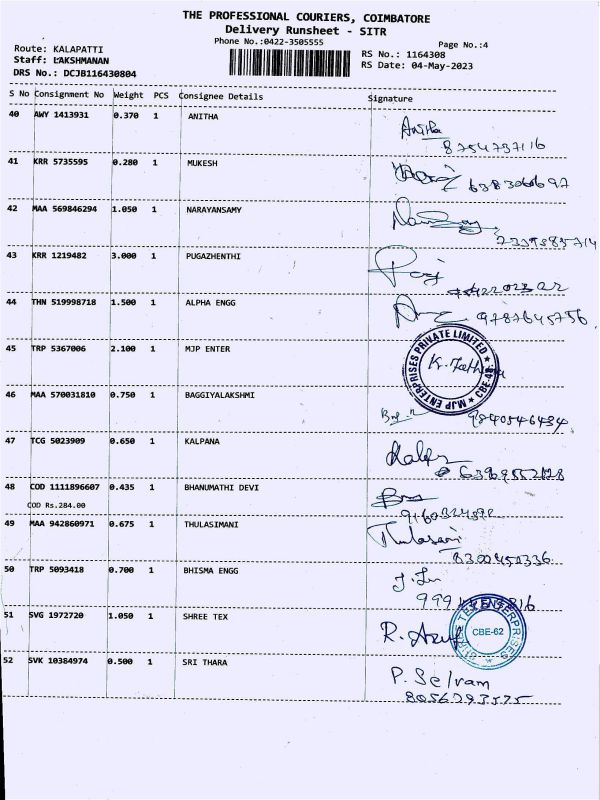 THE PROFESSIONAL COURIERS, COIMBATORE
Delivery Runsheet - SITR
Phone No.:0422-3505555
Page No.:4
Route: KALAPATTI
RS No.: 1164308
Staff: LAKSHMANAN
RS Date: 04-May-2023
DRS No.: DCJB116430804
S No Consignment No Weight PCS Consignee Details Signature
40 AWY 1413931 0.370 1 ANITHA Anitha
8754737116
41 KRR 5735595 0.280 1 MUKESH
42 MAA 569846294 1.050 1 NARAYANSAMY
43 KRR 1219482 3.000 1 PUGAZHENTHI
44 THN 519998718 1.500 1 ALPHA ENGG
9787645756
45 TRP 5367006 2.100 1 MJP ENTER
MJP ENTERPRISES PRIVATE LIMITED CBE-48
46 MAA 570031810 0.750 1 BAGGIYALAKSHMI
9840546434
47 TCG 5023909 0.650 1 KALPANA
48 COD 1111896607 0.435 1 BHANUMATHI DEVI
COD Rs.284.00
49 MAA 942860971 0.675 1 THULASIMANI Thulasani
6300450336
50 TRP 5093418 0.700 1 BHISMA ENGG
51 SVG 1972720 1.050 1 SHREE TEX
ENTERPRISES CBE-62
52 SVK 10384974 0.500 1 SRI THARA P. Selvam
8056293575